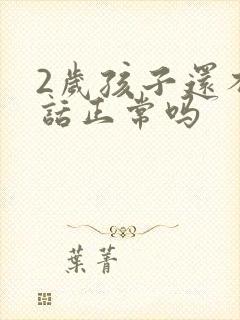 2歲孩子還不
話正常吗
葉菁